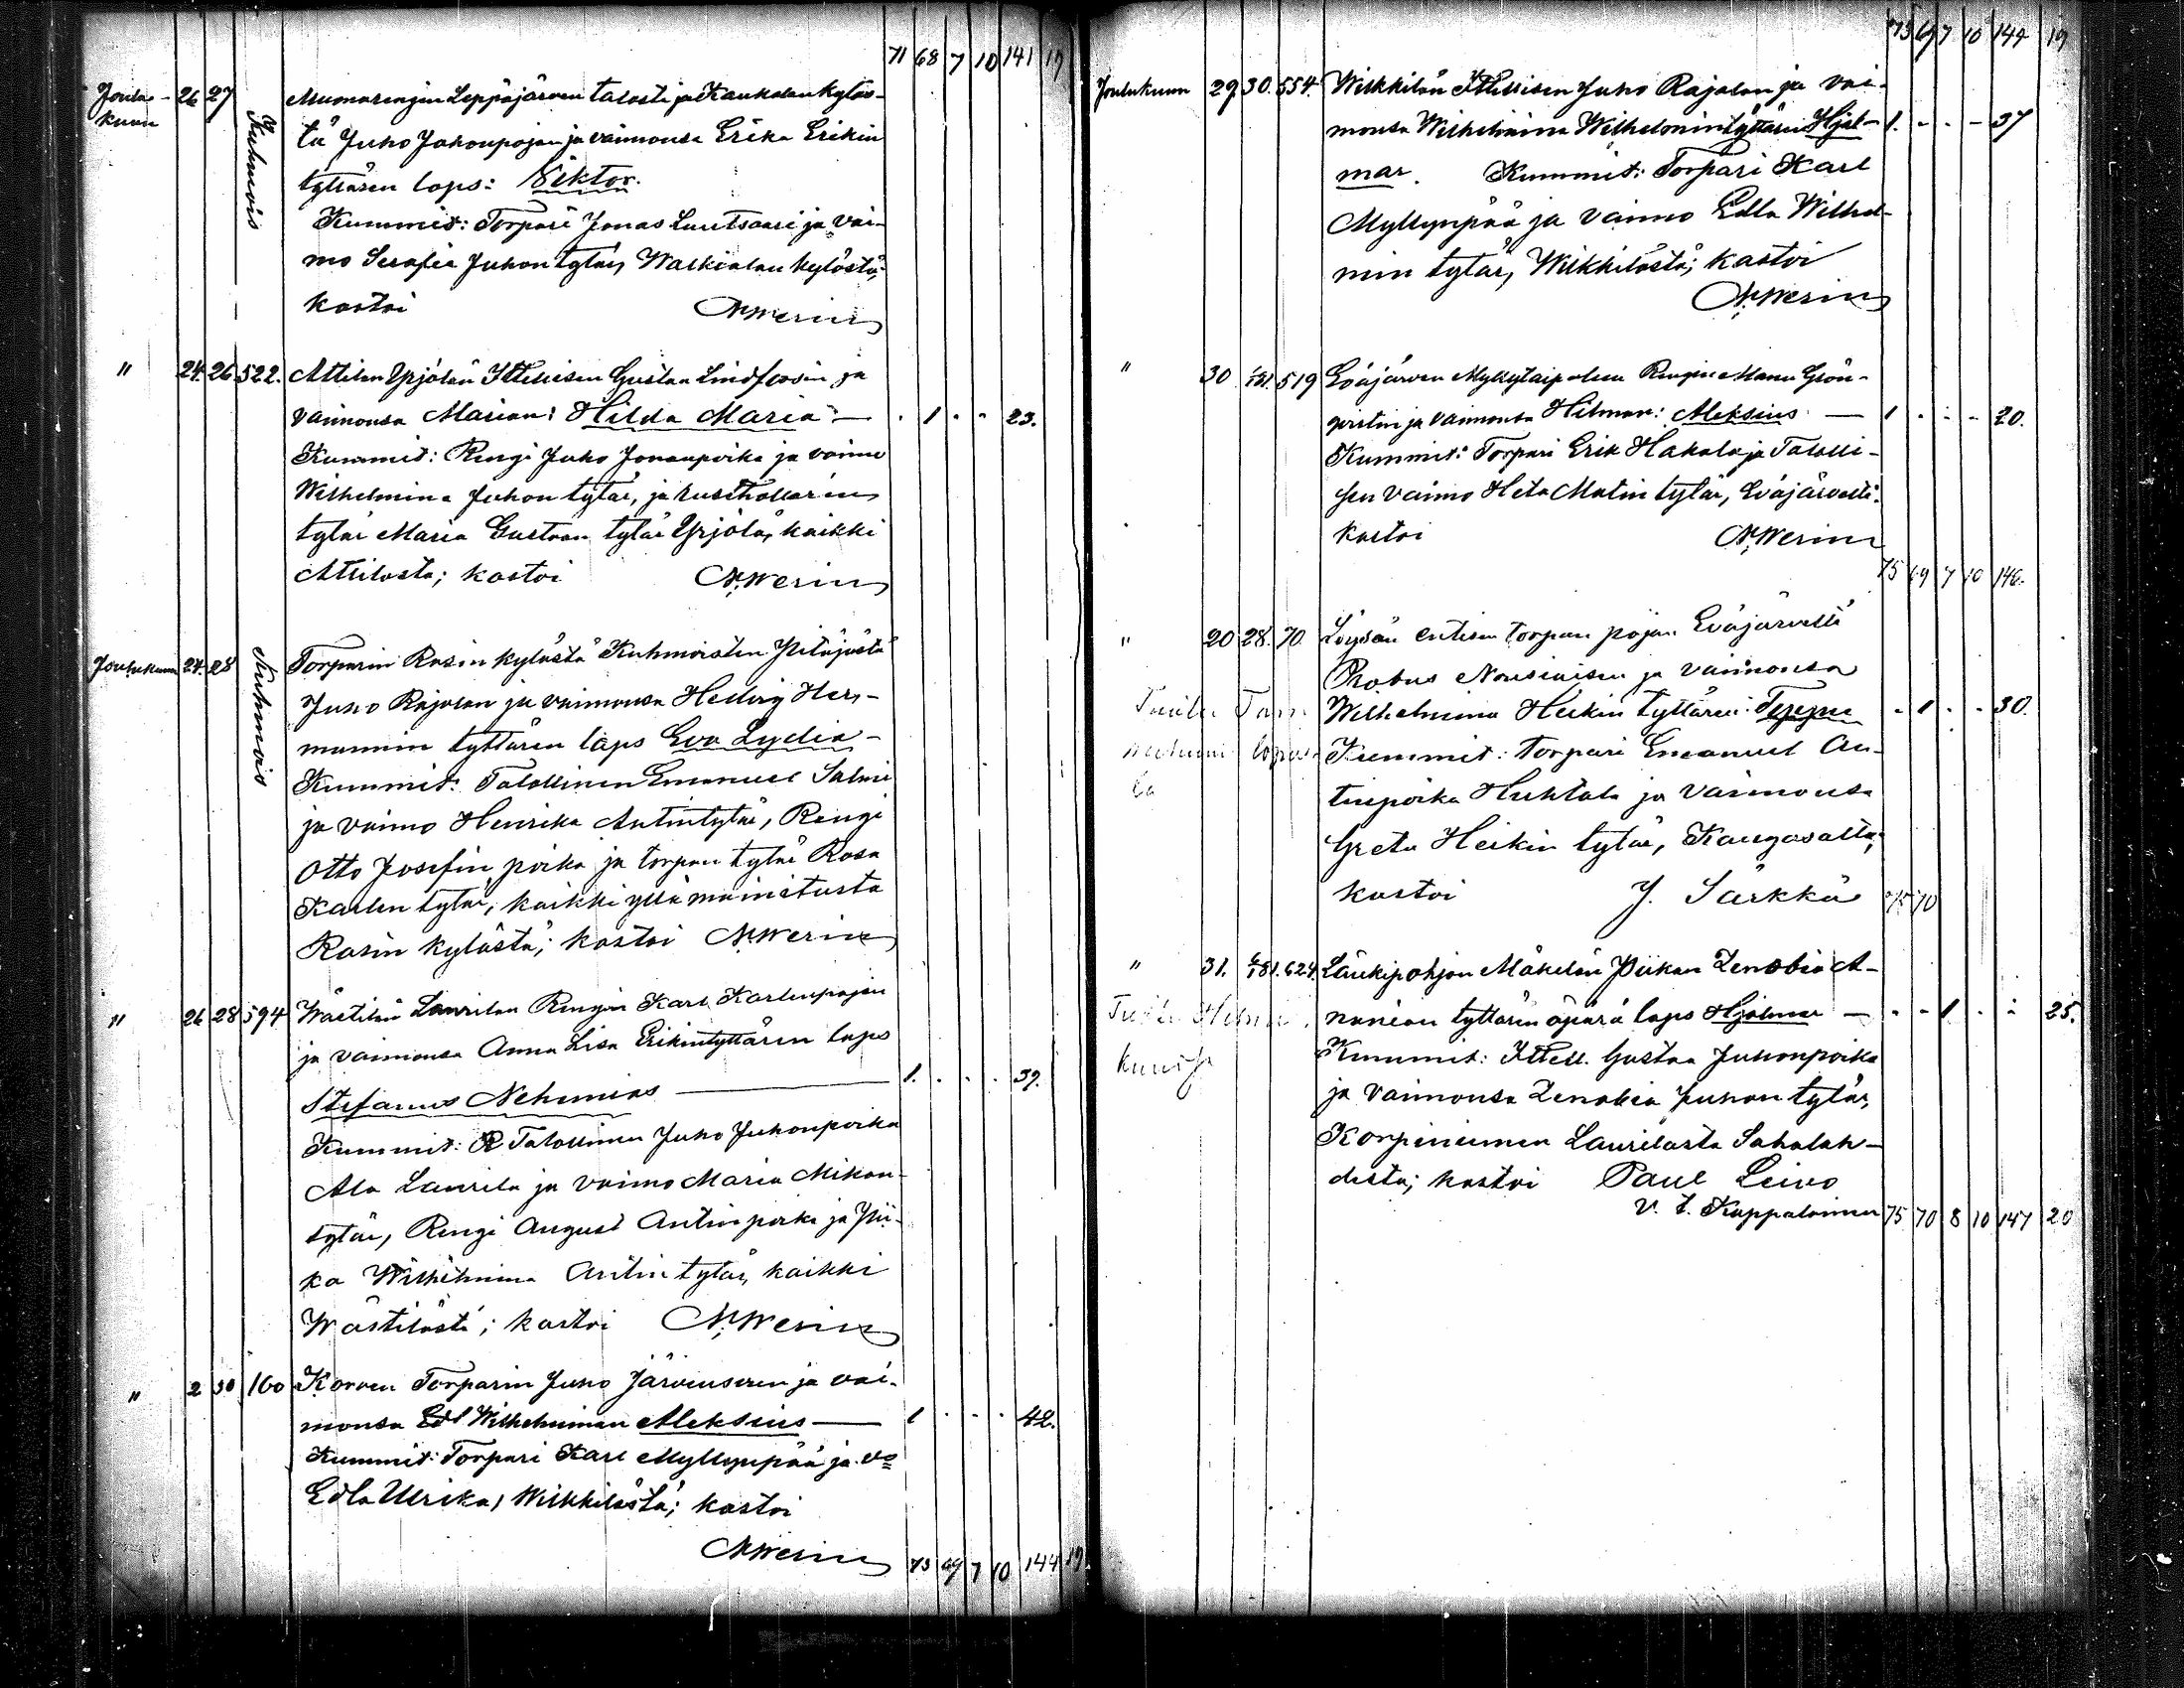 71 68 7 10 141 19
Joulu- 26 27 Muonarengin Leppäjärven talosta ja Kaukolan kyläs-
kuun Kuhmois tä Juho Juhonpojan ja vaimonsa Erika Erikin
tyttären laps: Viktor.
Kummit: Torpari Jonas Luutsaari ja vai-
mo Serafia Juhon tytär, kylästä;
kastoi K. Werin
" 24. 26 522. Attilan Yrjölän Itellisen Gustaa Lindforsin ja
vaimonsa Marian: Hilda Maria — . 1 . . 23.
Kummit: Rengi Juho Jonaanpoika ja vaimo
Wilhelmina Juhon tytär, ja rusthollarin
tytär Maria Gustaan tytär Yrjölä, kaikki
Attilasta; kastoi K. Werin
Joulukuun 24. 28 Kuhmois Torparin Rasin kylästä Kuhmoisten Pitäjästä
Juho Rajalan ja vaimonsa Hedvig Her-
mannin tyttären laps Eva Lydia —
Kummit: Talollinen Emanuel Salmi
ja vaimo Henrika Antintytär, Rengi
Otto Josefin poika ja torpan tytär Rosa
Kaarlen tytär, kaikki yllä mainitusta
Rasin kylästä; kastoi K. Werin
" 26 28 594 Wästilän Laurilan Rengin Karl Karlenpojan
ja vaimonsa Anna Lisa Erikintyttären laps
Stefanus Nehemias — 1. . . . 39.
Kummit: R Talollinen Juho Juhonpoika
Ala Laurila ja vaimo Maria Mikon-
tytär, Rengi August Antinpoika ja Pii-
ka Wilhelmina Antin tytär, kaikki
Wästilästä; kastoi K. Werin
" 2 30 160 Korven Torparin Juho Järvensivun ja vai-
monsa Edl Wilhelminan Aleksius — 1 . . . 42.
Kummit: Torpari Karl Myllynpää ja vo
Edla Ulrika, Wilkkilästä; kastoi
K. Werin 73 69 7 10 144 19
73 69 7 10 144 19
Joulukuun 29 30. 554. Wilkkilän Itellisen Juho Rajalan ja vai-
monsa Wilhelmina Wilhelmintyttären Hjal- 1. - - - 37
mar. Kummit: Torpari Karl
Myllynpää ja vaimo Edla Wilhel-
min tytär, Wilkkilästä; kastoi
K. Werin
" 30 1/81. 519 Eväjärven Mykytaipaleen Rengin Manu Grön-
qvistin ja vaimonsa Hilman: Aleksius — 1 . - - 20.
Kummit: Torpari Erik Hakala ja Talolli-
sen vaimo Heta Matin tytär, Eväjärveltä.
kastoi K. Werin
75 69 7 10 146.
" 20 28. 70 Löysän entisen torpan pojan Eväjärveltä
Probus Nousiaisen ja vaimonsa
Wilhelmina Heikin tyttären: Teppu - 1 . - 30.
Kummit: Torpari Emanuel An-
tinpoika Huhtala ja vaimonsa
Greta Heikin tytär, Kangasalta;
kastoi J. Särkkä 75 70
" 31. 6/1 81. 624. Länkipohjan Mäkelän Piikan Zenobia A-
nanian tyttären äpärä laps Hjalmar — - - 1 . - 25.
Kummit: Itell. Gustaa Juhonpoika
ja vaimonsa Zenobia Juhon tytär,
Korpiniemen Laurilasta Sahalah-
desta; kastoi Paul Leivo
v. t. Kappalainen 75 70 8 10 147 20